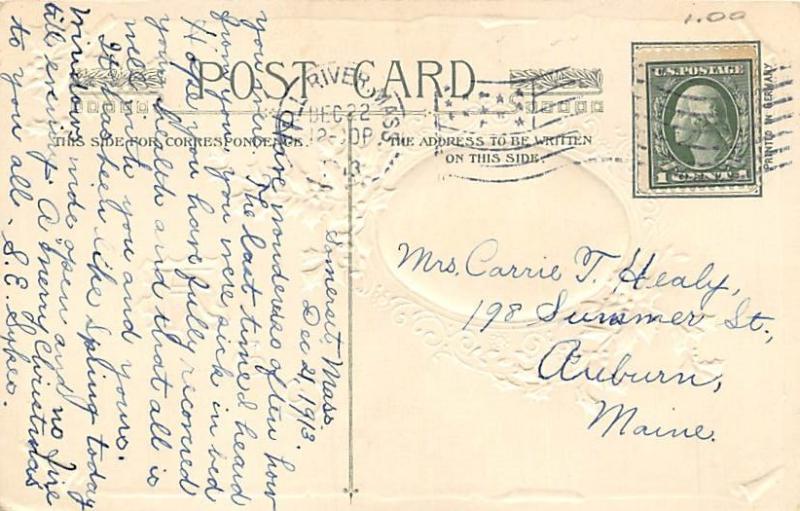 1.00
POST CARD
THIS SIDE FOR CORRESPONDENCE.
THE ADDRESS TO BE WRITTEN
ON THIS SIDE
RIVER, MASS
DEC 22
12-30P
U.S. POSTAGE
1 CENT 1
PRINTED IN GERMANY
Mrs. Carrie T. Healy,
198 Summer St.,
Auburn,
Maine.
Somerset, Mass.
Dec 21, 1913.
Have wondered so often how
you were. The last time I heard
from you you were sick in bed
Hope you have fully recovered
your health and that all is
well with you and yours.
It has been like Spring today
Windows wide open and no fire
till evening. A Merry Christmas
to you all. S. E.